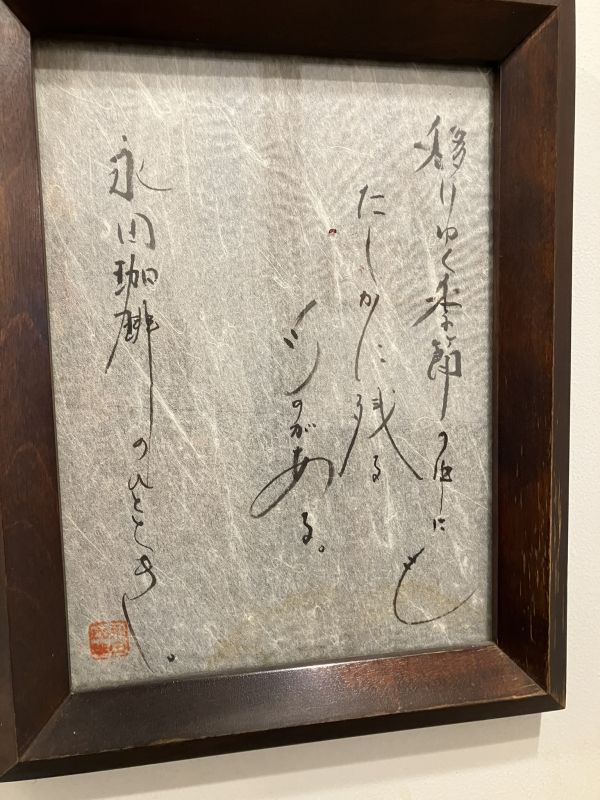 移りゆく季節の中にも
たしかに残る
ものがある。
永田珈琲のひととき。